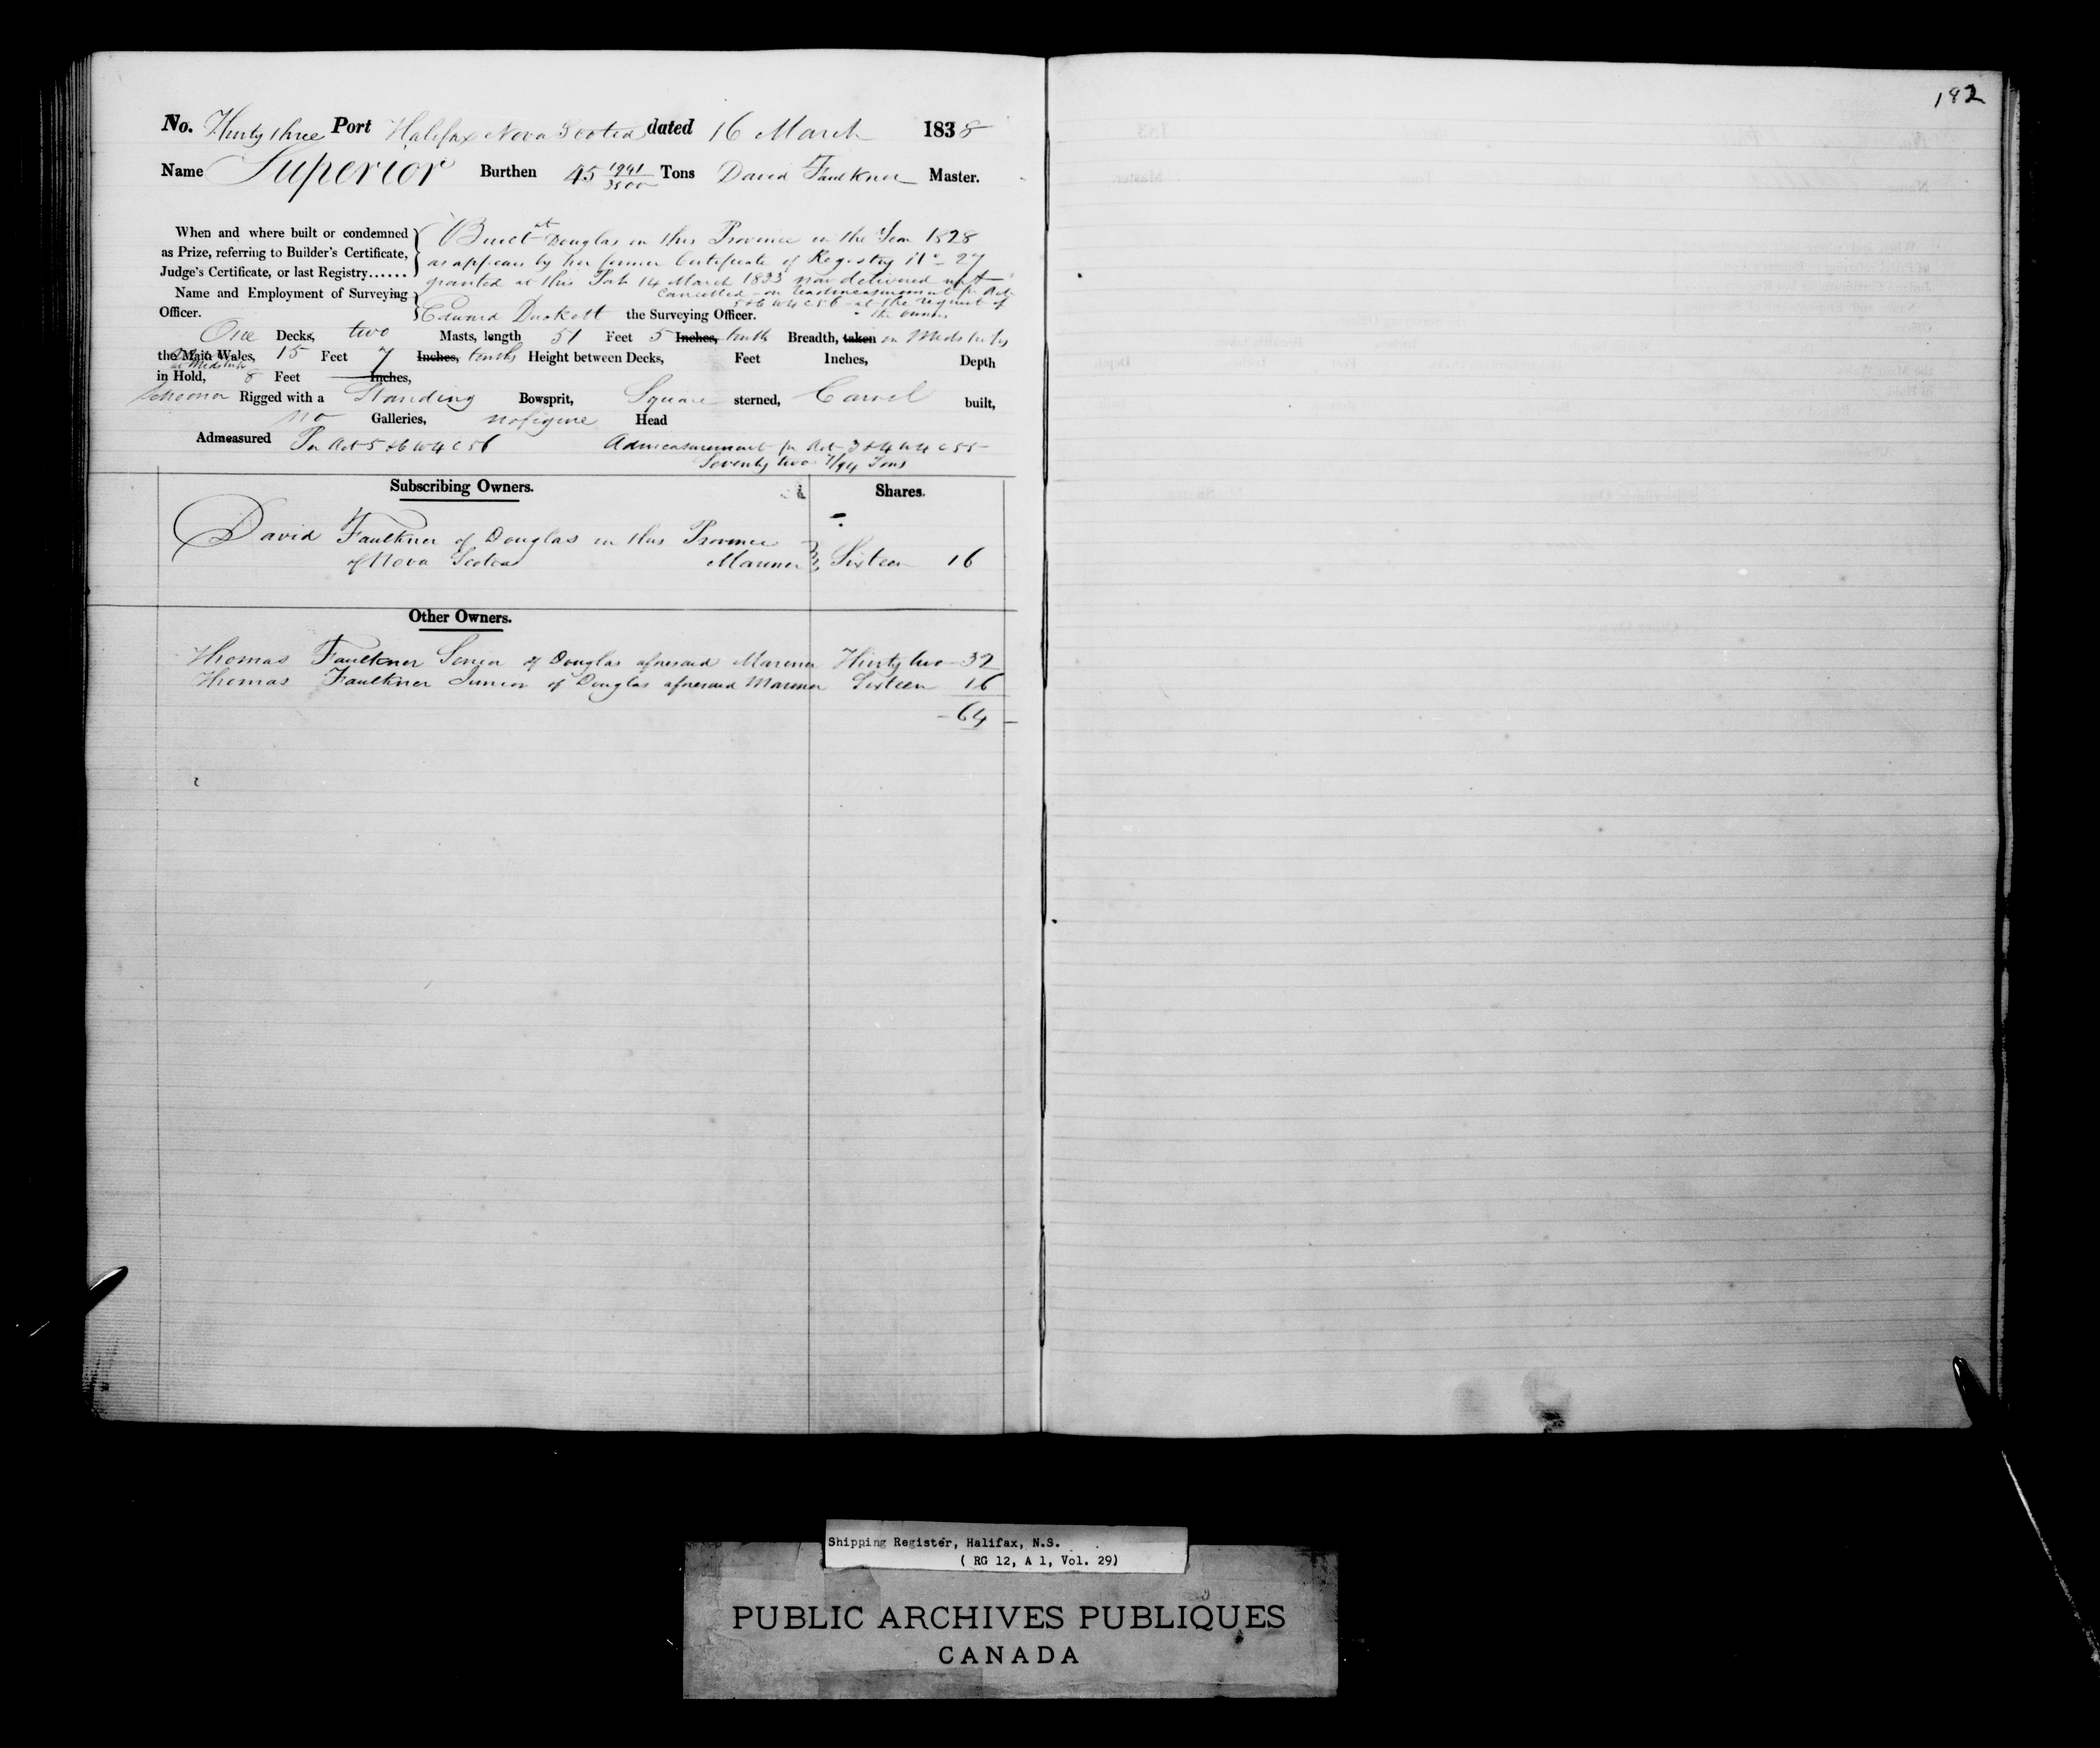 182
No. Thirty three Port Halifax Nova Scotia dated 16 March 1838
Name Superior Burthen 45 1991/3500 Tons David Faulkner Master.
When and where built or condemned
as Prize, referring to Builder's Certificate,
Judge's Certificate, or last Registry......
Built at Douglas in this Province in the Year 1828
as appears by her former Certificate of Registry No 27
granted at this Port 14 March 1833 now delivered up &
Cancelled on readmeasurement pr Act
5 & 6 W 4 C 56 at the request of
the owners
Name and Employment of Surveying
Officer. Edward Duckett the Surveying Officer.
One Decks, two Masts, length 51 Feet 5 Inches, tenths Breadth, taken in Midships
the Main Wales, 15 Feet 7 Inches, tenths Height between Decks, Feet Inches, Depth
at Midships
in Hold, 8 Feet Inches,
Schooner Rigged with a Standing Bowsprit, Square sterned, Carvel built,
no Galleries, no figure Head
Admeasured Pr Act 5 & 6 W 4 C 56 Admeasurement pr Act 3 & 4 W 4 C 55
Seventy two 7/94 Tons
Subscribing Owners. Shares.
David Faulkner of Douglas in this Province
of Nova Scotia Mariner Sixteen 16
Other Owners.
Thomas Faulkner Senior of Douglas aforesaid Mariner Thirty two 32
Thomas Faulkner Junior of Douglas aforesaid Mariner Sixteen 16
64
Shipping Register, Halifax, N.S.
( RG 12, A 1, Vol. 29)
PUBLIC ARCHIVES PUBLIQUES
CANADA